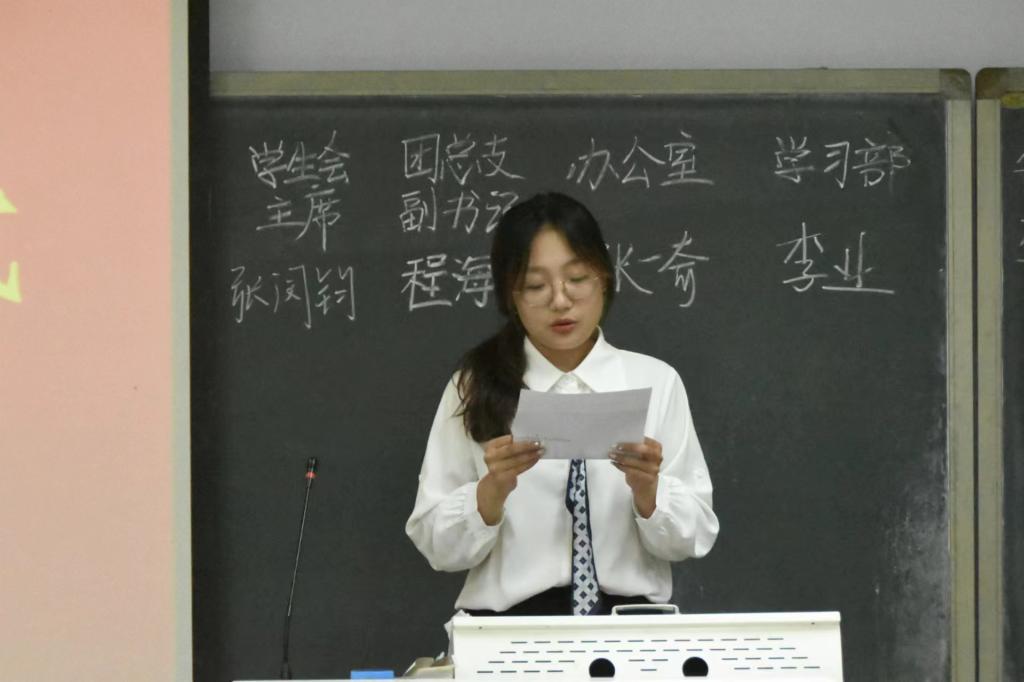 学生会 团总支 办公室 学习部
主席 副书记
张闵钧 程海 张一奇 李业